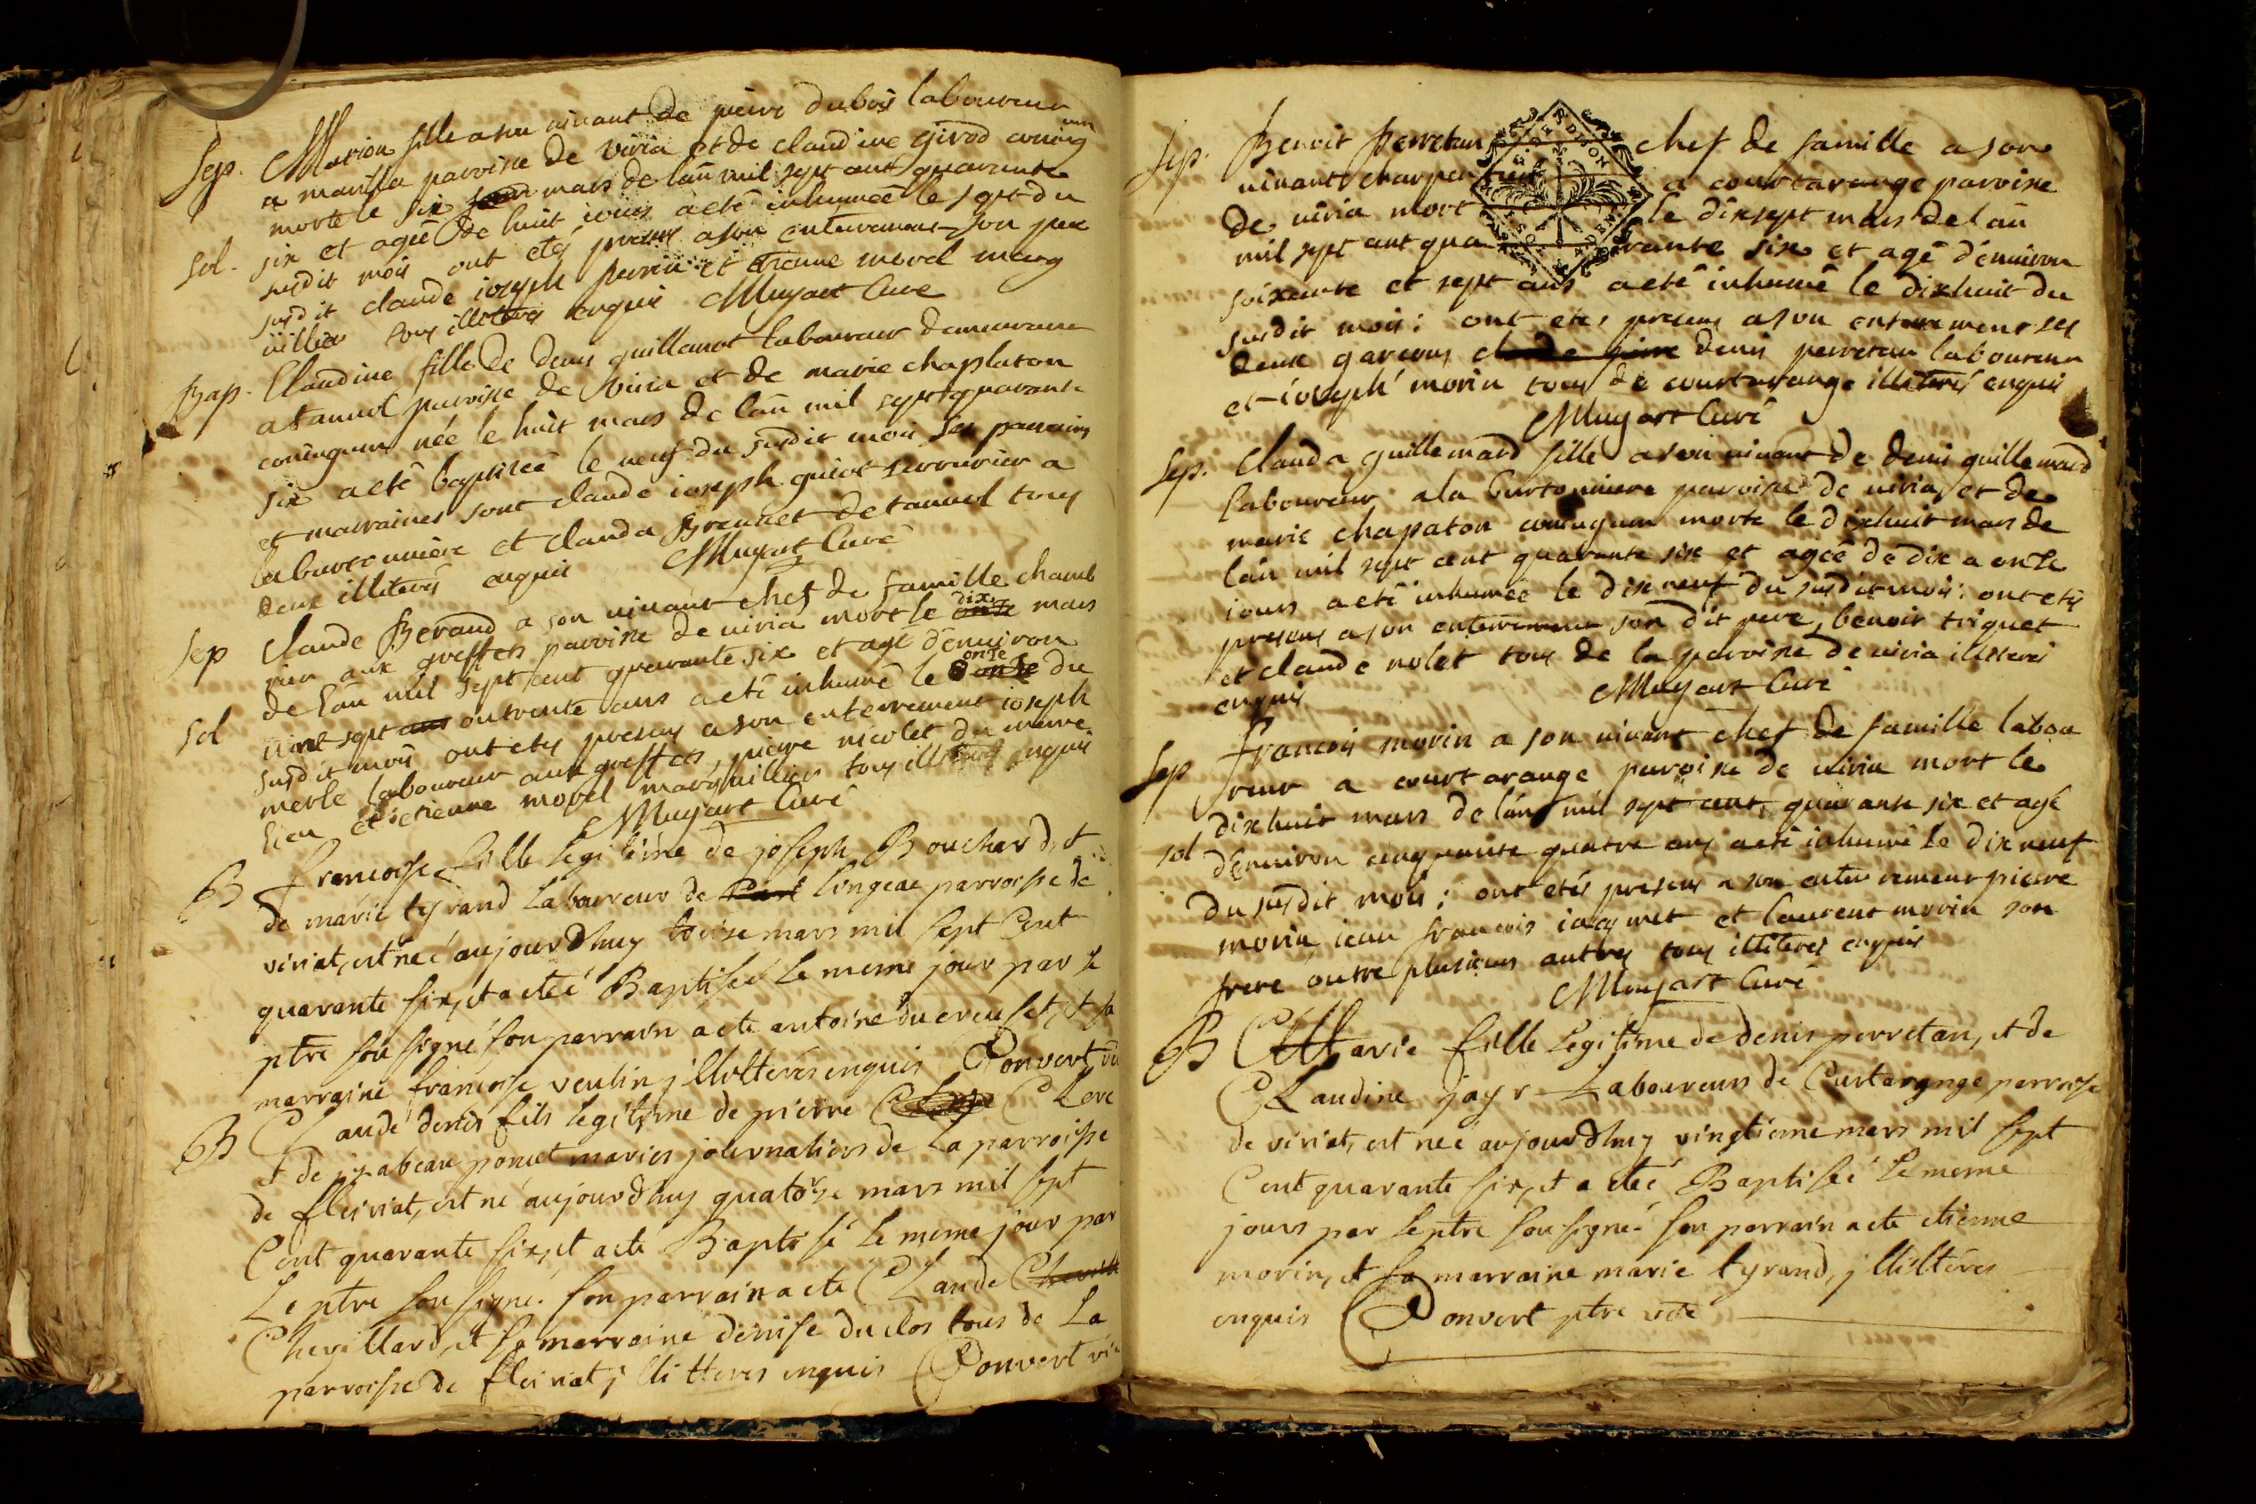 Sep. Marion fille a son vivant de pierre dubois laboureur
a marilla paroisse de viria et de claudine girod coniug
morte le six mars de lan mil sept cent quarante
Sol. six et agée de huit iours a eté inhumée le sept du
susdit mois ont etés presens a son enterrement son pere
susdit claude ioseph perrin et etienne morel marg
uillier tous illitterés enquis Muyart Curé
Bap. Claudine fille de denis guillamot laboureur demeurant
a tannil paroisse de viria et de marie chaplaton
coniugum née le huit mars de lan mil sept quarante
six a eté baptisée le neuf du susdit mois ses parrains
et marraines sont claude ioseph guiot serrurier a
laburtonniere et clauda Brennet de tannil tous
deux illiterés enquis Muyart Curé
Sep Claude Beraud a son vivant chef de famille chamb
rier aux greffets paroisse de viria mort le onse dix mars
de lan mil sept cent quarante six et agé denviron
Sol vint sept ans ou trente ans a eté inhumé le onse du
susdit mois ont etés presens a son enterrement ioseph
merle laboureur aux greffets, pierre nicolet du meme
lieu et etienne morel marguillier tous illiterés enquis
Muyart Curé
B francoise fille legitime de joseph Bouchard, et
de marie tyrand Laboureurs de lingeat parroisse de
viriat, est neé aujourdhuy treise mars mil sept Cent
quarante six, et a eteé Baptiseé le meme jour par le
ptre sousigné son parrain a eté antoine du creuset, et sa
marraine francoise veulin jllitterés enquis Convert vic
B Claude denis fils legitime de pierre Clerc
et de jzabeau poncet mariés journaliers de La parroisse
de fleiriat, est né aujourdhuy quatorze mars mil sept
Cent quarante six, et a eté Baptisé le meme jour par
Le ptre sousigné. son parrain a eté Claude
Chevillard, et sa marraine denise duclos tous de La
parroisse de fleiriat jllitterés enquis Convert vic
Sep. Benoit Perretan chef de famille a son
vivant charpentier a courtarange paroisse
de viria mort le dixsept mars de lan
mil sept cent quarante six et agé denviron
soixante et sept ans a eté inhumé le dixhuit du
susdit mois; ont etés presens a son enterrement ses
deux garcons denis perretan laboureur
et ioseph morin tous de courtarange illiterés enquis
Muyart Curé
Sep. Clauda guillemard fille a son vivant de denis guillemard
laboureur a la burtonniere paroisse de viria et de
marie chapaton coniugum morte le dixhuit mars de
lan mil sept cent quarante six et agée de dix a onze
iours a eté inhumée le dix neuf du susdit mois: ont etés
presens a son enterrement son dit pere, benoit triquet
et claude nolet tous de la paroisse de viria illiterés
enquis Muyart Curé
Sep francois morin a son vivant chef de famille labou
reur a courtarange paroisse de viria mort le
dixhuit mars de lan mil sept cent quarante six et agé
Sol denviron cinquante quatre ans a eté inhumé le dix neuf
du susdit mois; ont etés presens a son enterrement pierre
morin iean francois iacquinet et laurent morin son
frere outre plusieurs autres tous illiterés enquis
Muyart Curé
B Marie fille legitime de denis perretan, et de
Claudine jayr Laboureurs de Curtarange parroisse
de viriat, est neé aujourdhuy vingtieme mars mil sept
Cent quarante six, et a eteé Baptiseé le meme
jours par le ptre sousigné. son parrain a eté etienne
morin, et sa marraine marie tyrand, jllitterés
enquis Convert ptre vic